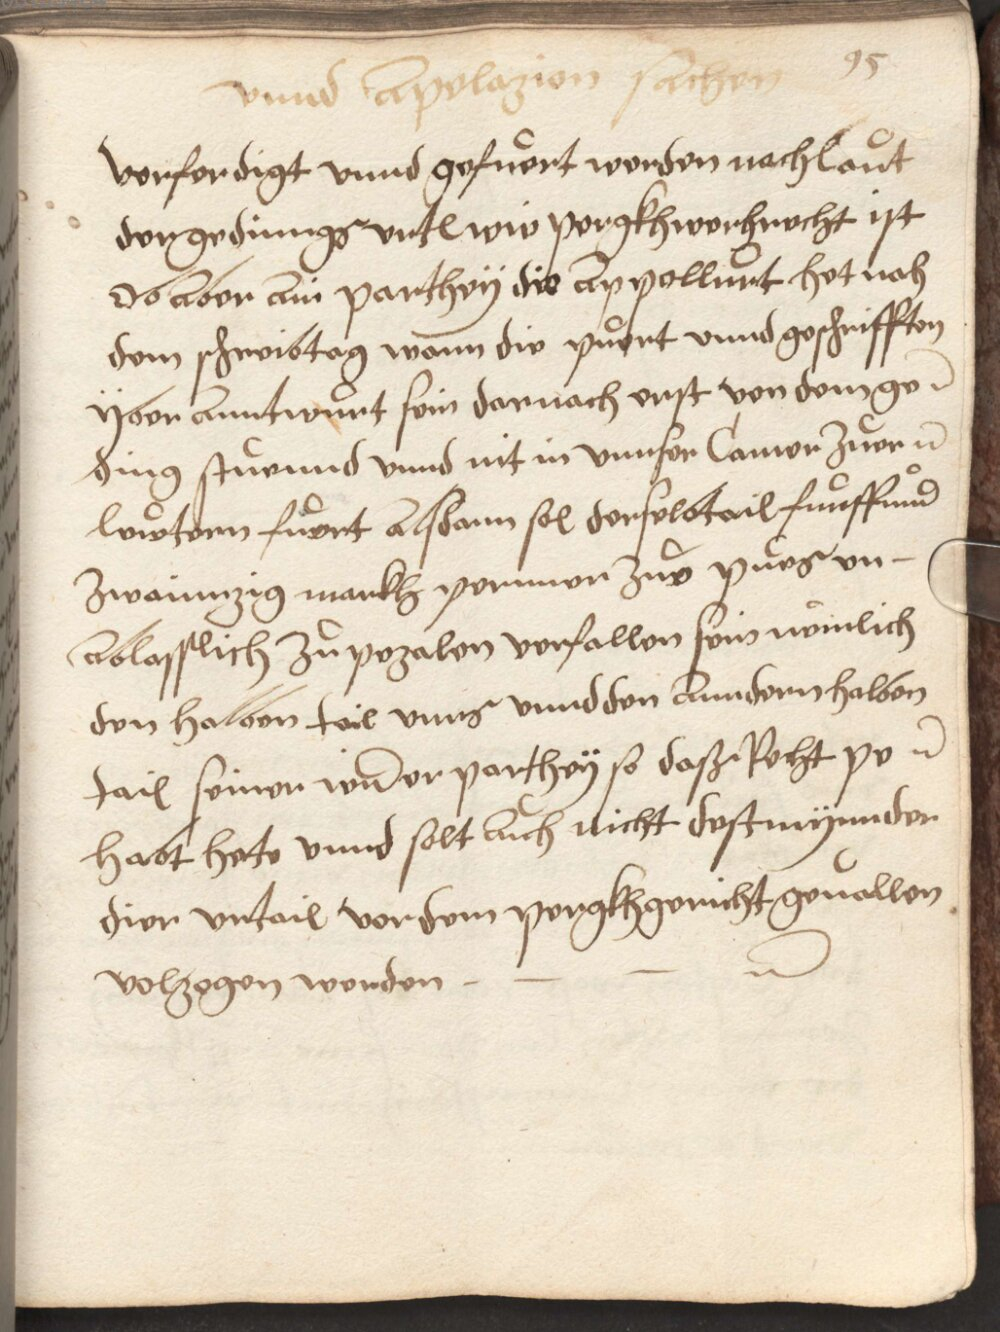 vnnd Apelazion sachen 95
verferdigt vnnd gefuert werden nach laut
der gedinngs vrtl wie pergkhwerchrecht ist
Ob aber ain parthey die Appelliert het nach
dem schreibtag wann die puert vnnd geschrifften
yber anntwurt sein darnach erst von dem ge
ding stuennd vnnd nit in vnnser Camer zuer
lewtern fuert alsdann sol derselb tail funffund
zwainnzig markh perrner zue pues un-
ablasslich zu pezalen verfallen sein nemlich
den halben tail vnns vnnd den anndern halben
tail seiner widerparthey so daß Recht pe
habt hete vnnd solt auch nicht destmynnder
die vrtail vor dem pergkhgericht geuallen
volzogen werden - - -